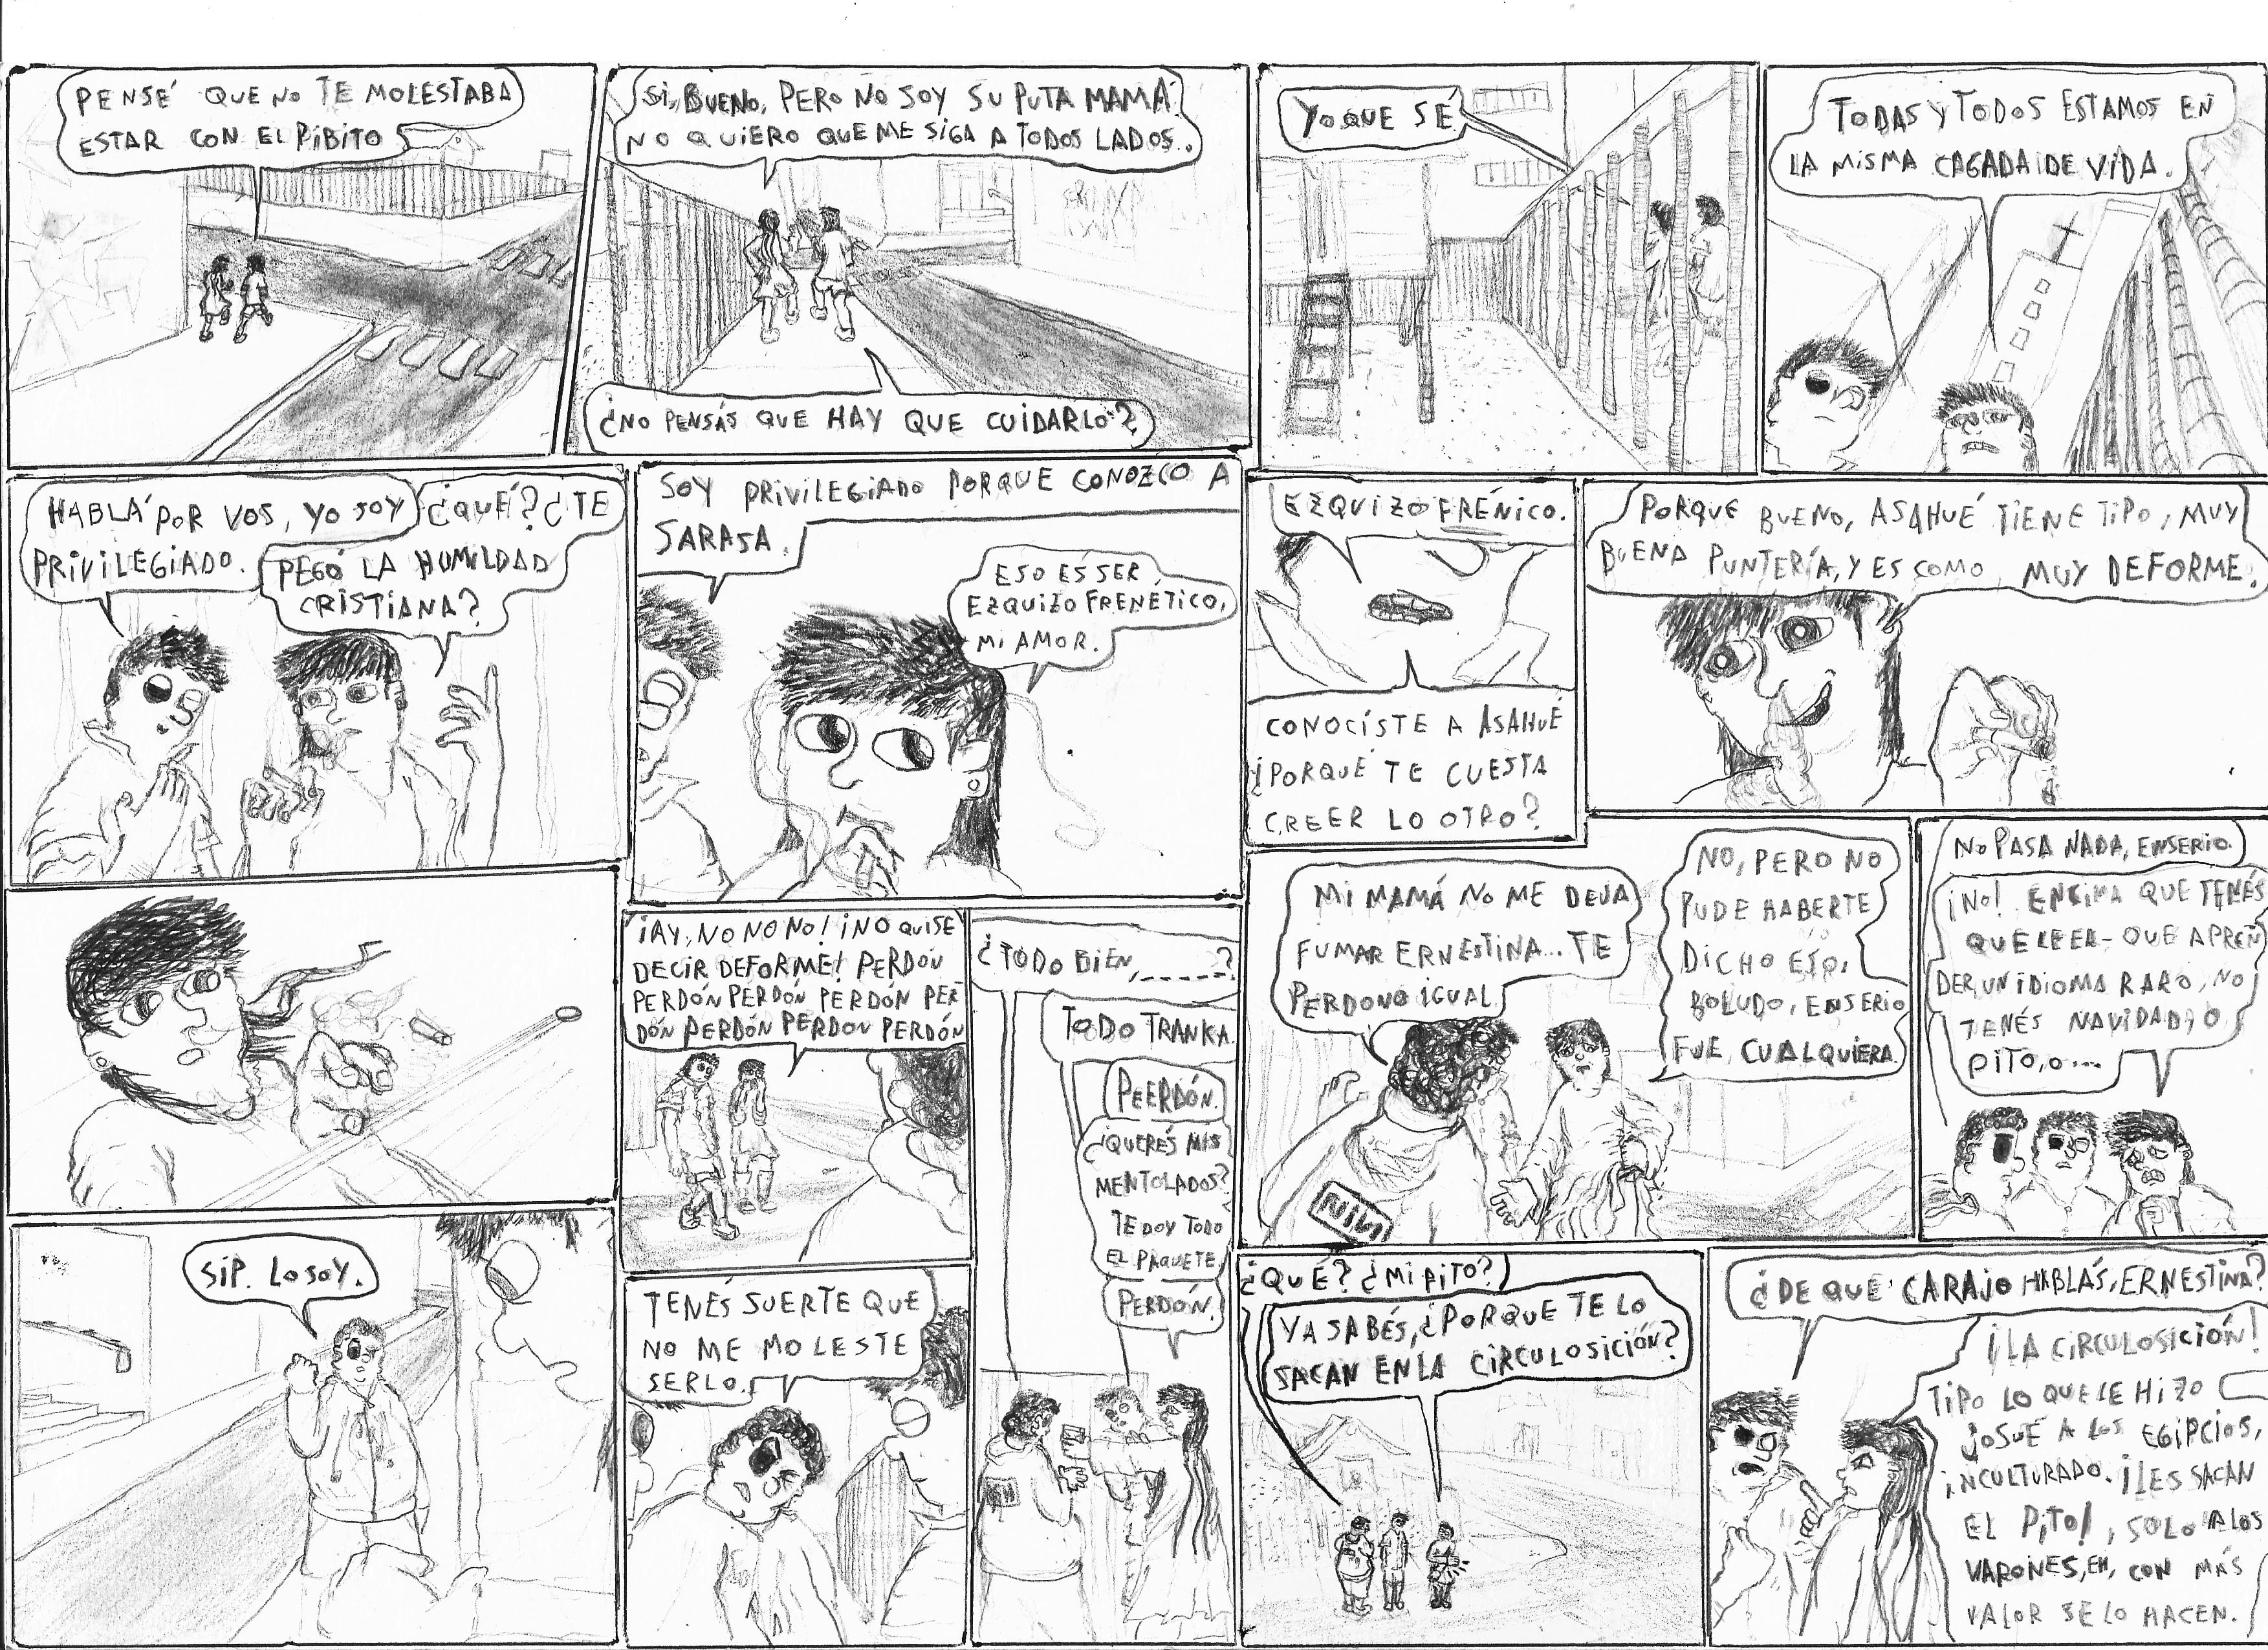 PENSÉ QUE NO TE MOLESTABA
ESTAR CON EL PIBITO
SI, BUENO, PERO NO SOY SU PUTA MAMÁ
NO QUIERO QUE ME SIGA A TODOS LADOS.
¿NO PENSÁS QUE HAY QUE CUIDARLO?
YO QUE SÉ
TODAS Y TODOS ESTAMOS EN
LA MISMA CAGADA DE VIDA.
HABLÁ POR VOS, YO SOY
PRIVILEGIADO.
¿QUÉ? ¿TE
PEGÓ LA HUMILDAD
CRISTIANA?
SOY PRIVILEGIADO PORQUE CONOZCO A
SARASA.
ESO ES SER
EZQUIZO FRENÉTICO,
MI AMOR.
EZQUIZO FRÉNICO.
CONOCÍSTE A ASAHUÉ
¿PORQUÉ TE CUESTA
CREER LO OTRO?
PORQUE BUENO, ASAHUÉ TIENE TIPO, MUY
BUENA PUNTERÍA, Y ES COMO MUY DEFORME.
SIP. LO SOY.
¡AY, NO NO NO! ¡NO QUISE
DECIR DEFORME! PERDÓN
PERDÓN PERDÓN PERDÓN PER
DÓN PERDÓN PERDÓN PERDÓN
TENÉS SUERTE QUE
NO ME MOLESTE
SERLO.
¿TODO BIEN, ------?
TODO TRANKA.
PEERDÓN.
¿QUERÉS MIS
MENTOLADOS?
TE DOY TODO
EL PAQUETE,
PERDÓN.
MI MAMÁ NO ME DEJA
FUMAR ERNESTINA... TE
PERDONO IGUAL.
NO, PERO NO
PUDE HABERTE
DICHO ESO,
BOLUDO, ENSERIO
FUE CUALQUIERA.
NO PASA NADA, ENSERIO.
¡NO! ENCIMA QUE TENÉS
QUE LEER- QUE APREN
DER UN IDIOMA RARO, NO
TENÉS NAVIDAD, O
PITO, O...
¿QUÉ? ¿MI PITO?
YA SABÉS, ¿PORQUE TE LO
SACAN EN LA CIRCULOSICIÓN?
¿DE QUÉ CARAJO HABLÁS, ERNESTINA?
¡LA CIRCULOSICIÓN!
TIPO LO QUE LE HIZO
JOSUÉ A LOS EGIPCIOS,
INCULTURADO. ¡LES SACAN
EL PITO!, SOLO A LOS
VARONES, EH, CON MÁS
VALOR SE LO HACEN.